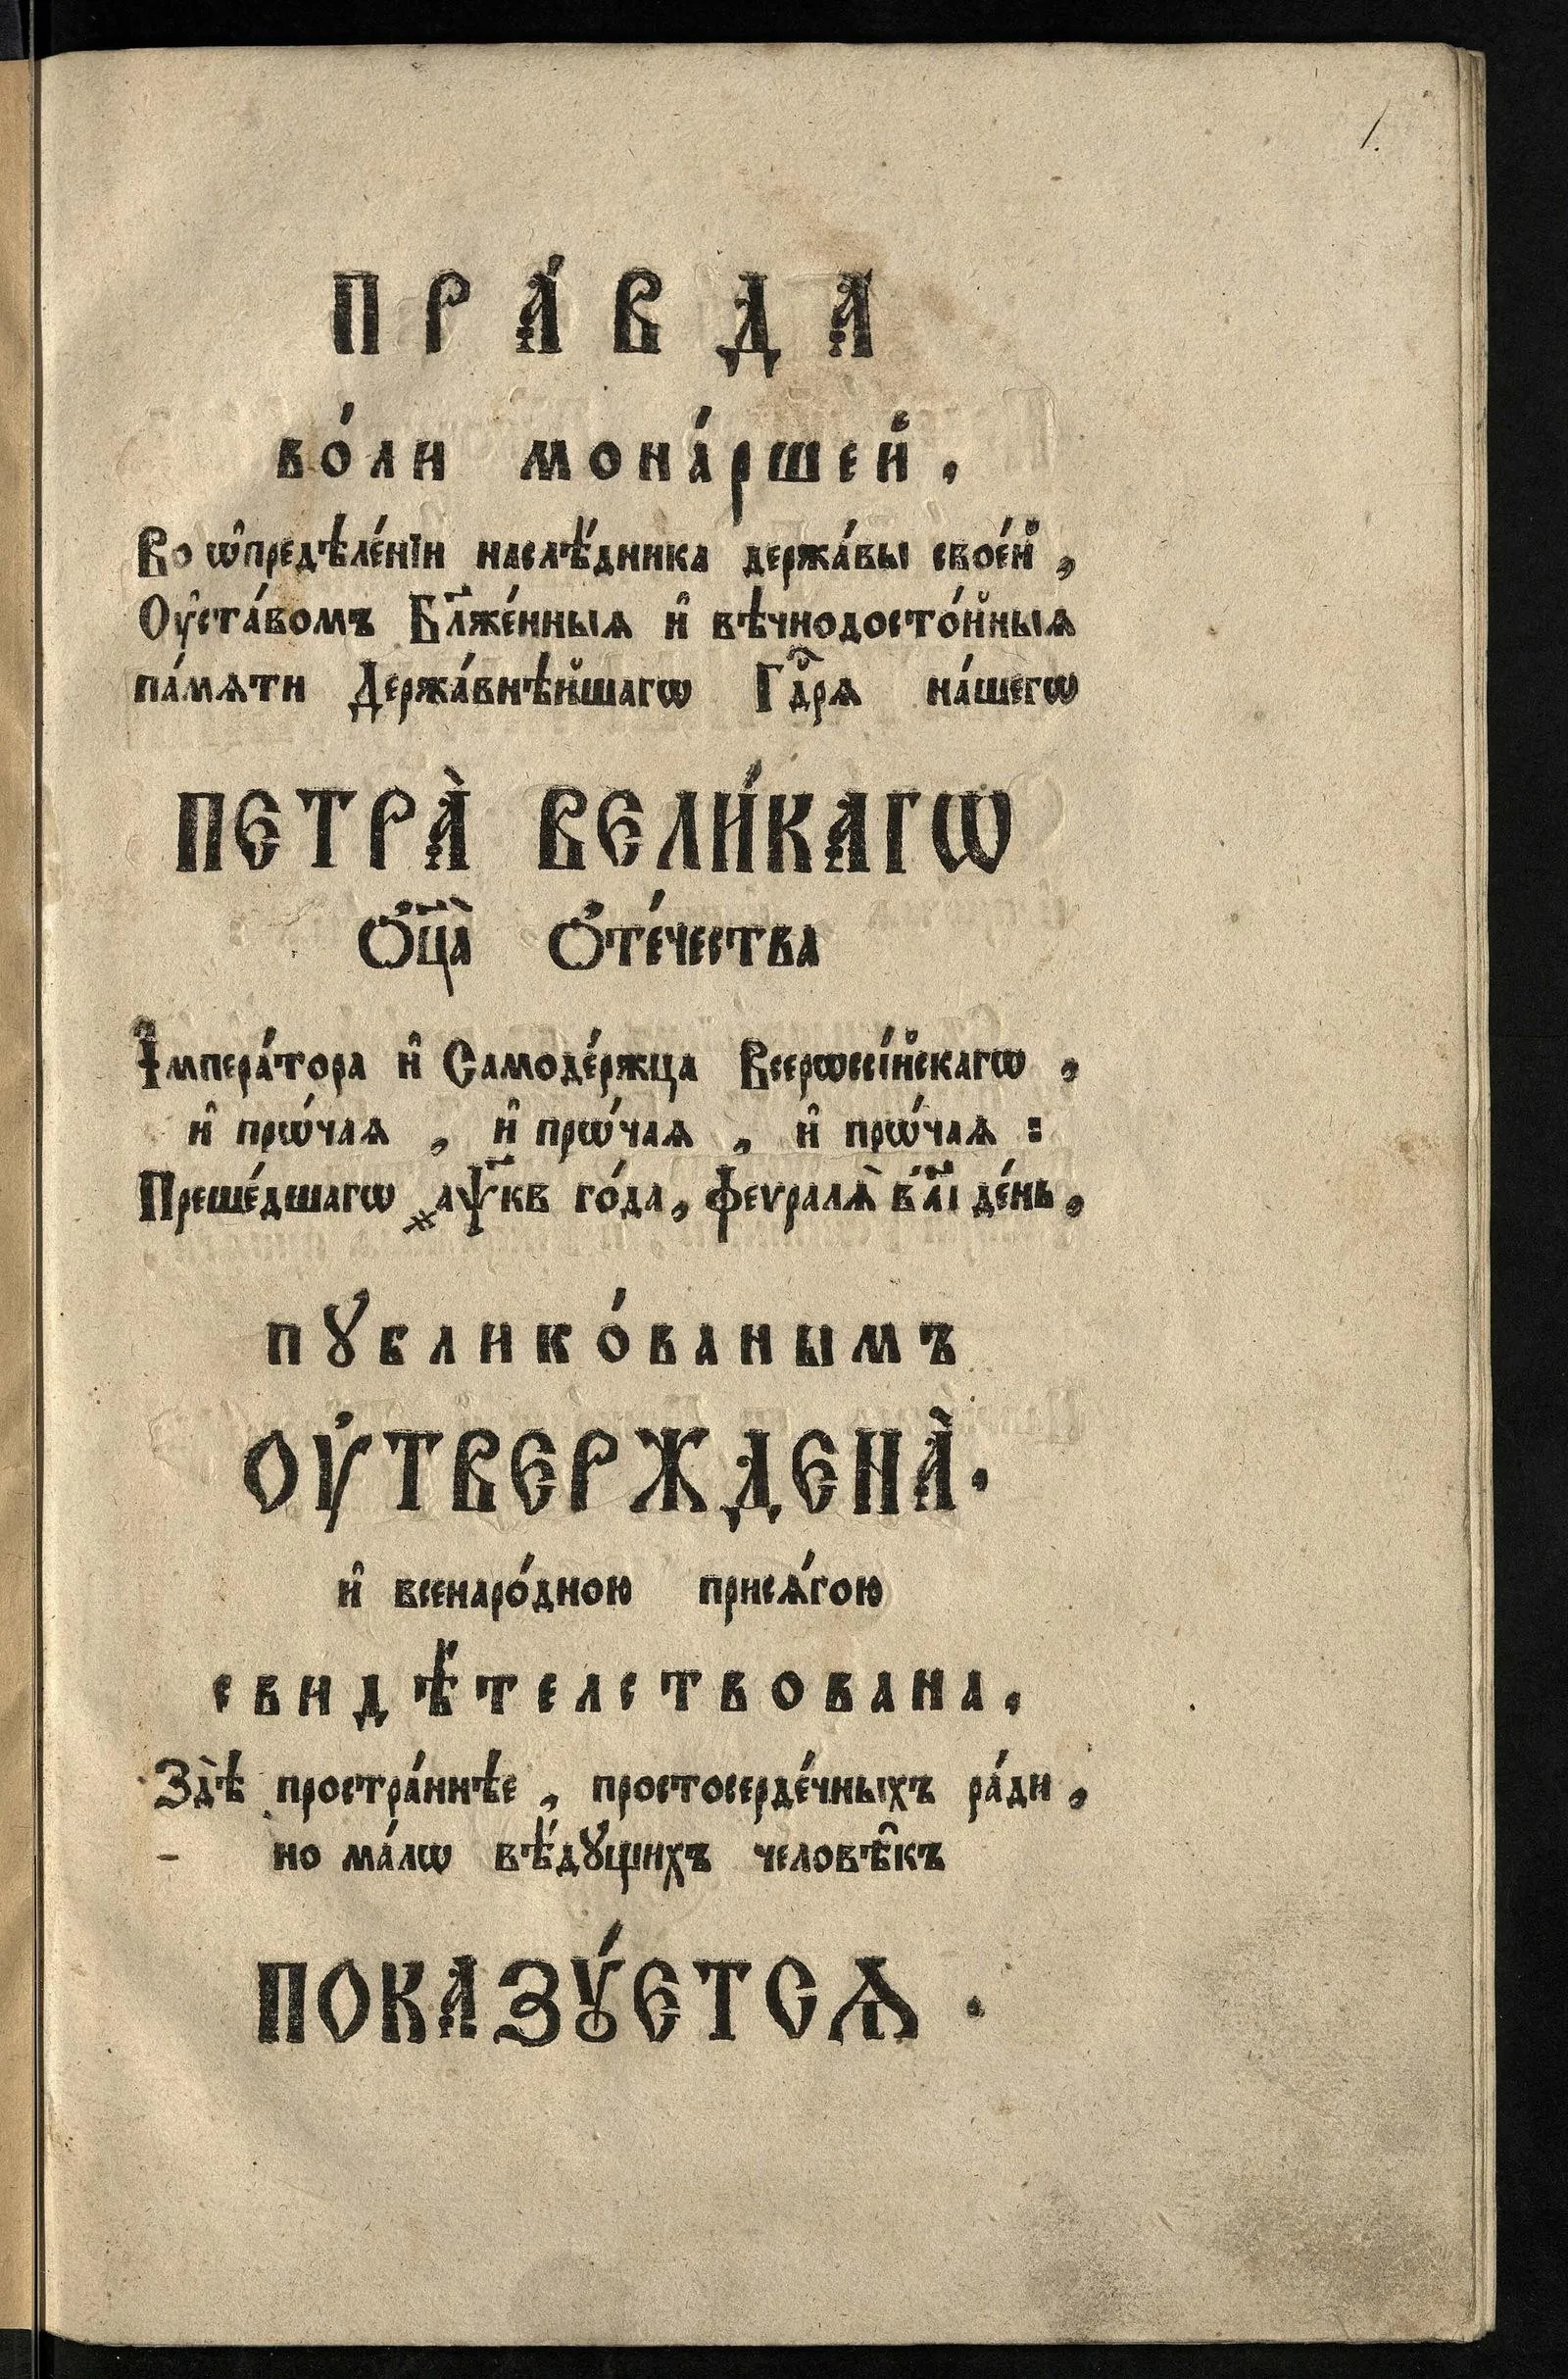 1.
ПРА́ВДА
во́ли мона́ршей,
Во ѡ҆предѣле́нїи наслѣ́дника держа́вы свое́й,
Оу҆ста́вомъ Бл҃же́нныѧ и҆ вѣчнодосто́йныѧ
па́мѧти Держа́внѣйшагѡ Гдⷭ҇рѧ на́шегѡ
ПЕТРА̀ ВЕЛИ́КАГѠ
Ѻ҆ц҃а̀ Ѻ҆те́чества
І҆мпера́тора и҆ Самоде́ржца Всерѡссі́йскагѡ,
и҆ прѡ́чаѧ, и҆ прѡ́чаѧ, и҆ прѡ́чаѧ:
Преше́дшагѡ ҂аѱ҃кв го́да, феѵралѧ̀ в҃ а҃і де́нь,
пꙋблико́ванымъ
ОУ҆ТВЕРЖДЕНА̀.
и҆ всенаро́дною присѧ́гою
свидѣ́телствована,
Здѣ̀ простра́ннѣе, простосерде́чныхъ ра́ди,
но ма́лѡ вѣ́дꙋщихъ человѣ̑къ
ПОКАЗꙊ́ЕТСѦ.